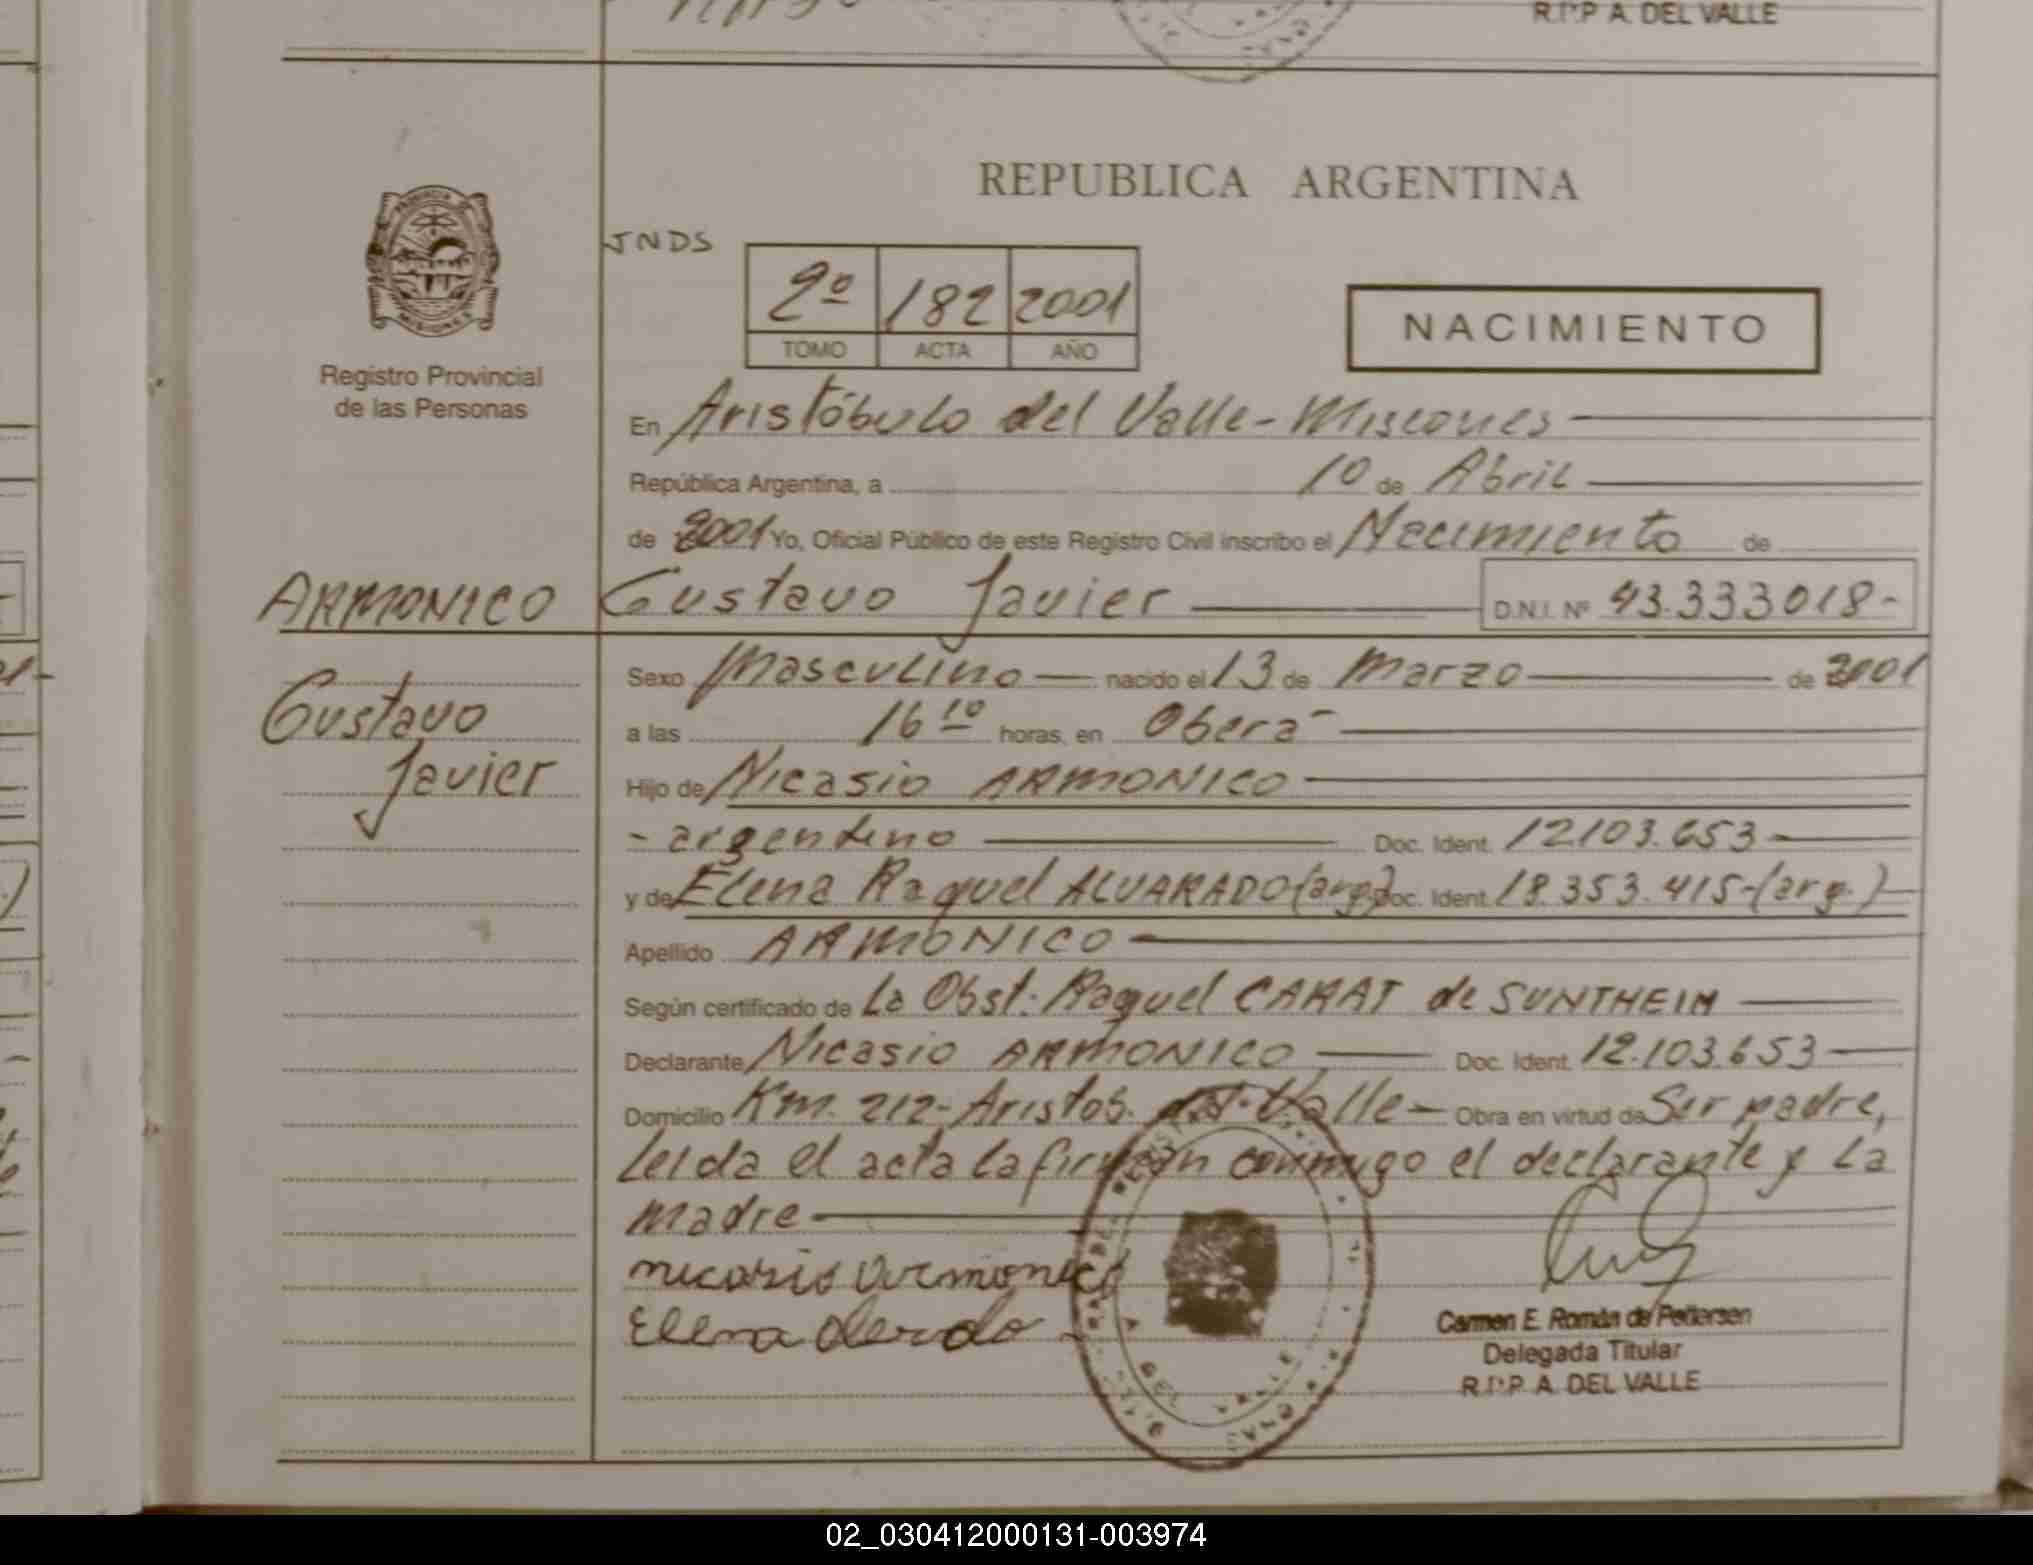 R.P.P A. DEL VALLE
REPUBLICA ARGENTINA
PROVINCIA DE
MISIONES
JNDS
2º 182 2001
TOMO ACTA AÑO
NACIMIENTO
Registro Provincial
de las Personas
En Aristóbulo del Valle - Misiones
República Argentina, a 10 de Abril
de 2001 Yo, Oficial Público de este Registro Civil inscribo el Nacimiento de
ARMONICO Gustavo Javier D.N.I. Nº 43.333018-
Gustavo
Javier
Sexo Masculino nacido el 13 de Marzo de 2001
a las 16 10 horas, en Oberá
Hijo de Nicasio ARMONICO
- argentino Doc. Ident. 12.103.653-
y de Elena Raquel ALVARADO (arg.) Doc. Ident. 18.353.415-(arg.)
Apellido ARMONICO
Según certificado de La Obst: Raquel CARAT de SUNTHEIM
Declarante Nicasio ARMONICO, Doc. Ident. 12.103.653
Domicilio Km. 212- Aristob. del Valle- Obra en virtud de Ser padre,
Leida el acta la firman conmigo el declarante y la
madre
nicasio Armonico
Elena
Carmen E. Román de Pedersen
Delegada Titular
R.P.P. A. DEL VALLE
A. DEL VALLE
02_030412000131-003974